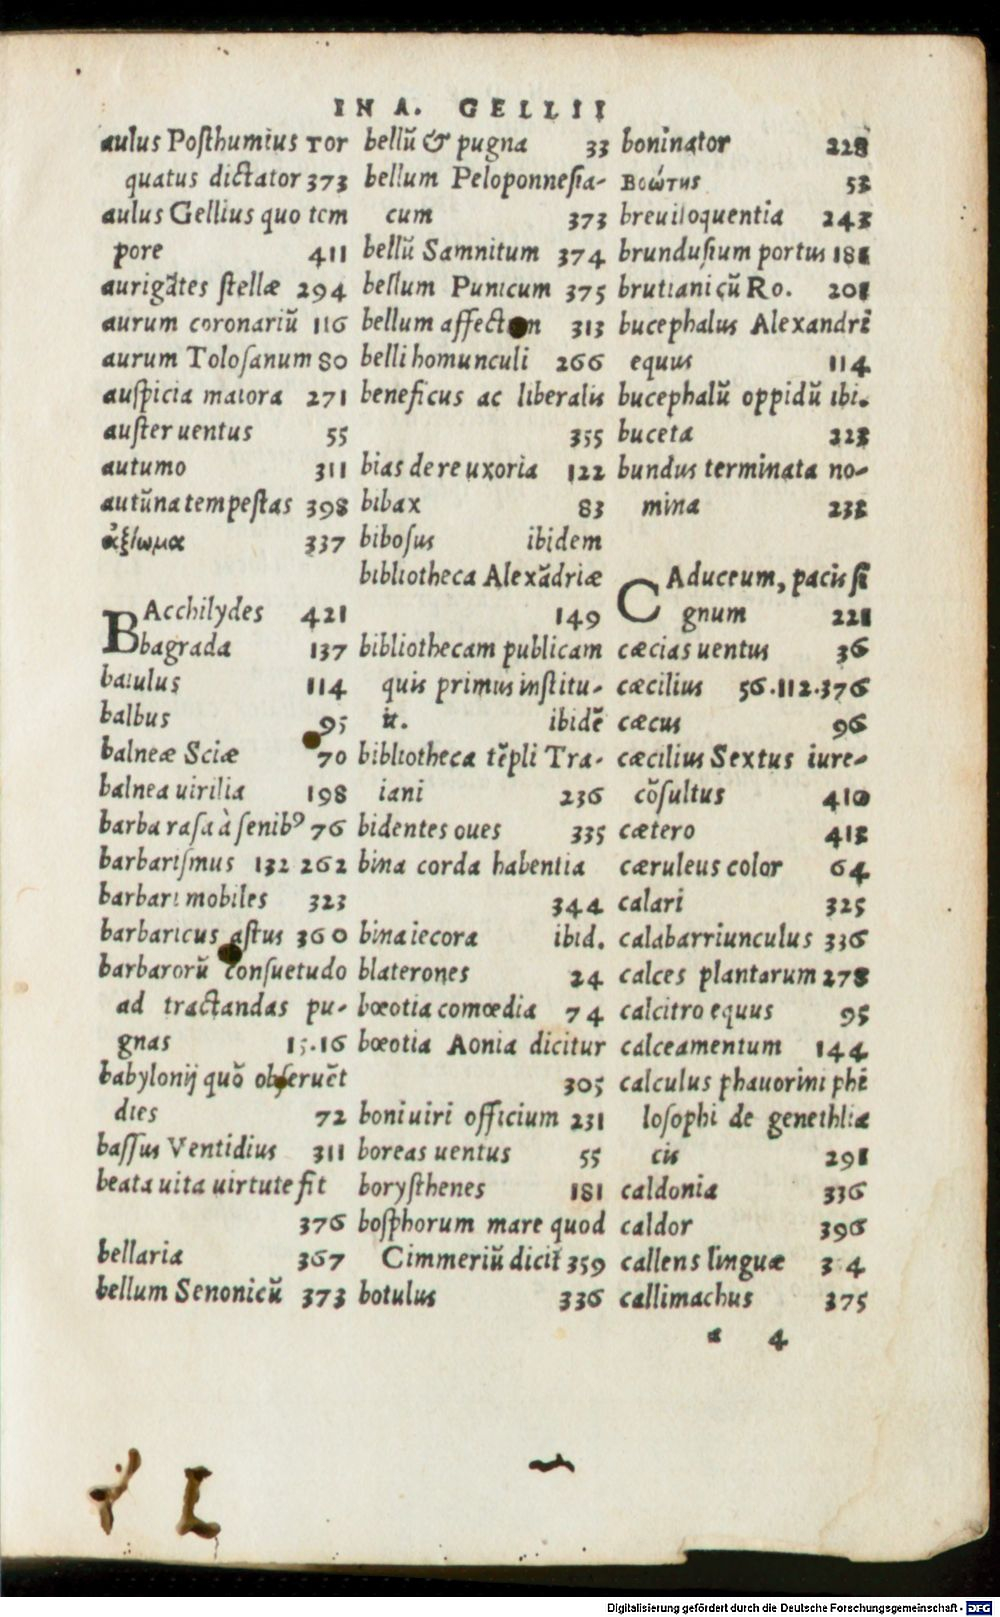 IN A. GELLII
aulus Posthumius Tor
quatus dictator 373
aulus Gellius quo tem
pore 411
aurigātes stellæ 294
aurum coronariū 116
aurum Tolosanum 80
auspicia maiora 271
auster uentus 55
autumo 311
autūna tempestas 398
ἀξίωμα 337
BAcchilydes 421
bbagrada 137
baiulus 114
balbus 95
balneæ Sciæ 70
balnea uirilia 198
barba rasa à senibꝰ 76
barbarismus 132 262
barbari mobiles 323
barbaricus astus 360
barbarorū consuetudo
ad tractandas pu-
gnas 15.16
babylonij quō obseruēt
dies 72
bassus Ventidius 311
beata uita uirtute fit
376
bellaria 367
bellum Senonicū 373
bellū & pugna 33
bellum Peloponnesia-
cum 373
bellū Samnitum 374
bellum Punicum 375
bellum affectum 313
belli homunculi 266
beneficus ac liberalis
355
bias de re uxoria 122
bibax 83
bibosus ibidem
bibliotheca Alexādriæ
149
bibliothecam publicam
quis primus institu-
it. ibidē
bibliotheca tēpli Tra-
iani 236
bidentes oues 335
bina corda habentia
344
bina iecora ibid.
blaterones 24
bœotia comœdia 74
bœotia Aonia dicitur
305
boni uiri officium 231
boreas uentus 55
borysthenes 181
bosphorum mare quod
Cimmeriū dicit 359
botulus 336
boninator 228
Βοώτης 53
breuiloquentia 243
brundusium portus 181
brutianicū Ro. 201
bucephalus Alexandri
equus 114
bucephalū oppidū ibi.
buceta 223
bundus terminata no-
mina 232
CAduceum, pacis si
gnum 221
cæcias uentus 36
cæcilius 56.112.376
cæcus 96
cæcilius Sextus iure-
cōsultus 410
cætero 412
cæruleus color 64
calari 325
calabarriunculus 336
calces plantarum 278
calcitro equus 95
calceamentum 144
calculus phauorini phi
losophi de genethlia
cis 291
caldonia 336
caldor 396
callens linguæ
callimachus 375
a 4
Digitalisierung gefördert durch die Deutsche Forschungsgemeinschaft - DFG